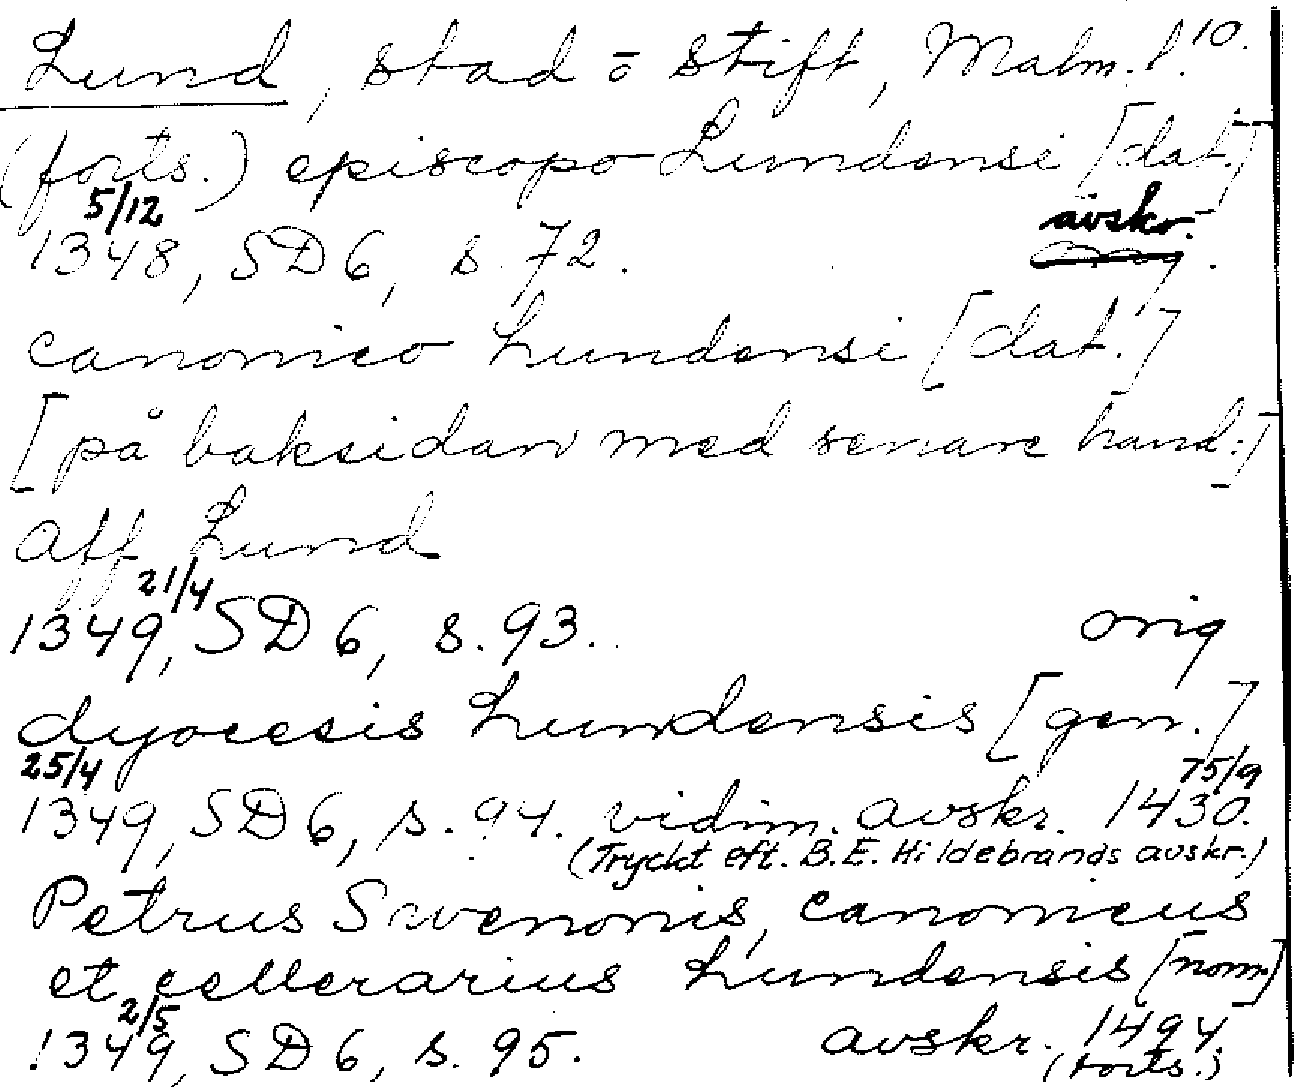 Lund, stad o stift, Malm. l. 10.
(forts.) episcopo Lundensi [dat.]
5/12 avskr.
1348, SD 6, s. 72.
canonico Lundensi [dat.]
[på baksidan med senare hand:]
aff Lund
21/4
1349, SD 6, s. 93. orig
dyocesis Lundensis [gen.]
25/4 75/9
1349, SD 6, s. 94. vidim. avskr. 1430.
(Tryckt eft. B.E. Hildebrands avskr.)
Petrus Swenonis, canonicus
et cellerarius Lundensis [nom]
2/5
1349, SD 6, s. 95. avskr. 1494.
(forts.)